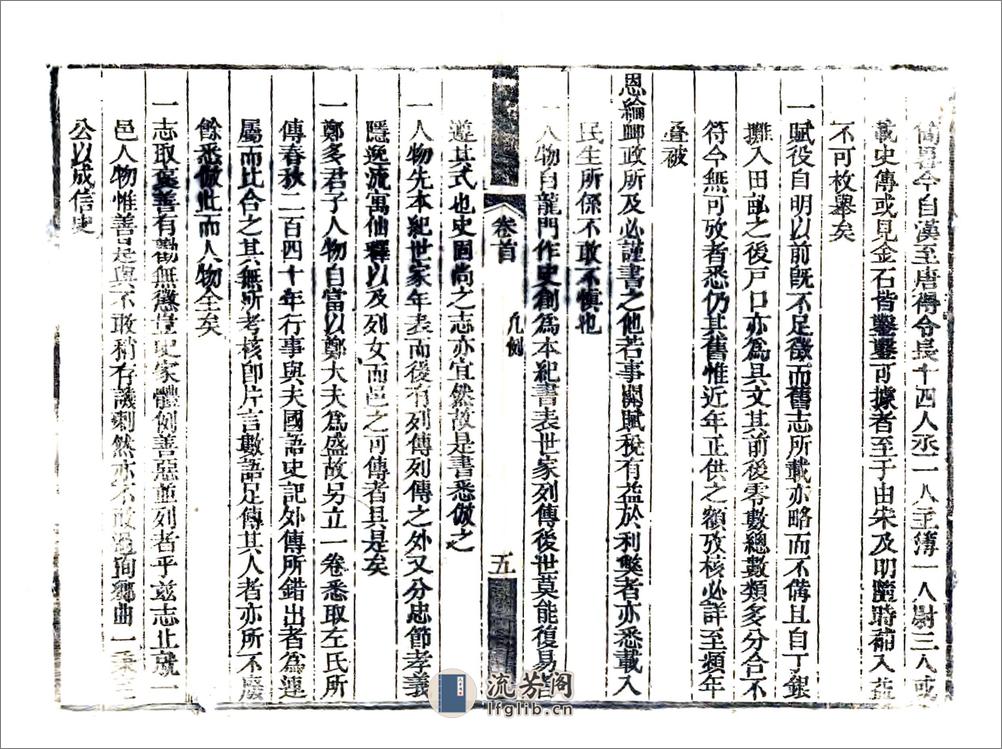 簡畧今自漢至唐得令長十四人丞一人主簿一人尉三人或
載史傳或見金石皆鑿鑿可據者至于由宋及明隨時補入益
不可枚舉矣
一賦役自明以前旣不足徵而舊志所載亦略而不備且自丁銀
攤入田畝之後戸口亦為具文其前後零數總數類多分合不
符今無可攷者悉仍其舊惟近年正供之額攷核必詳至頻年
疊被
恩綸䘏政所及必謹書之他若事關賦稅有益於利獘者亦悉載入
民生所係不敢不慎也
一人物自龍門作史創為本紀書表世家列傳後世莫能復易
卷首 凡例 五
遵其式也史固尚之志亦宜然故是書悉倣之
一人物先本紀世家年表而後有列傳列傳之外又分忠節孝義
隱逸流寓仙釋以及列女而邑之可傳者具是矣
一鄭多君子人物自當以鄭大夫為盛故另立一卷悉取左氏所
傳春秋二百四十年行事與夫國語史記外傳所錯出者為連
屬而比合之其無所考核卽片言數語足傳其人者亦所不廢
餘悉倣此而人物全矣
一志取襃善有勸無懲豈史家體例善惡並列者乎兹志止就一
邑人物惟善是與不敢稍存譏刺然亦不敢過徇鄉曲一秉至
公以成信史
流芳阁
lfglib.cn